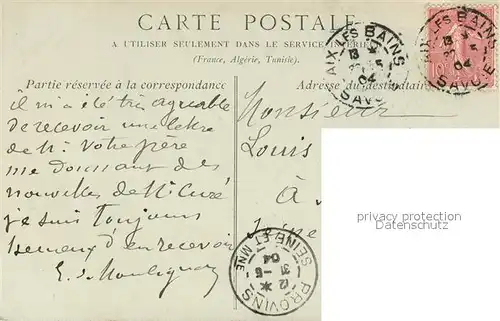 CARTE POSTALE
A UTILISER SEULEMENT DANS LE SERVICE INTÉRIEUR
(France, Algérie, Tunisie).
Partie réservée à la correspondance
Adresse du destinataire
il m'a été très agréable
de recevoir une lettre
de M. Votre père
me donnant des
nouvelles de M. Curé
je suis toujours
heureux d'en recevoir
Monsieur
Louis
à
AIX-LES-BAINS
13
5
04
SAVOIE
AIX-LES-BAINS
13
5
04
SAVOIE
PROVINS
SEINE-ET-MNE
12 *
31-5
04
privacy protection
Datenschutz